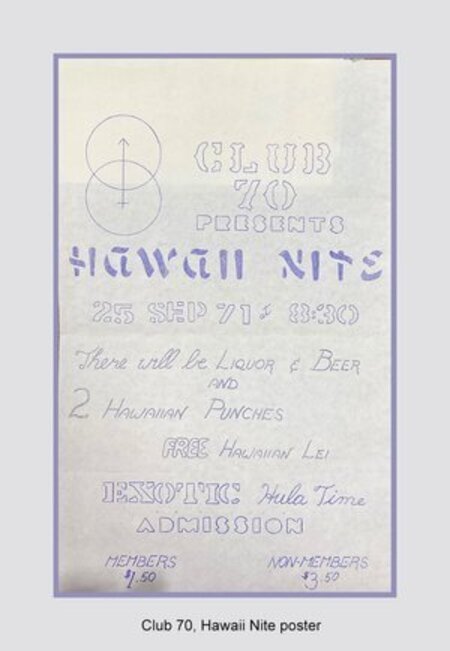 CLUB
70
PRESENTS
HAWAII NITE
25 SEP 71 & 8:30
There will be LIQUOR & BEER
AND
2 HAWAIIAN PUNCHES
FREE HAWAIIAN LEI
EXOTIC Hula Time
ADMISSION
MEMBERS NON-MEMBERS
$1.50 $3.50
Club 70, Hawaii Nite poster